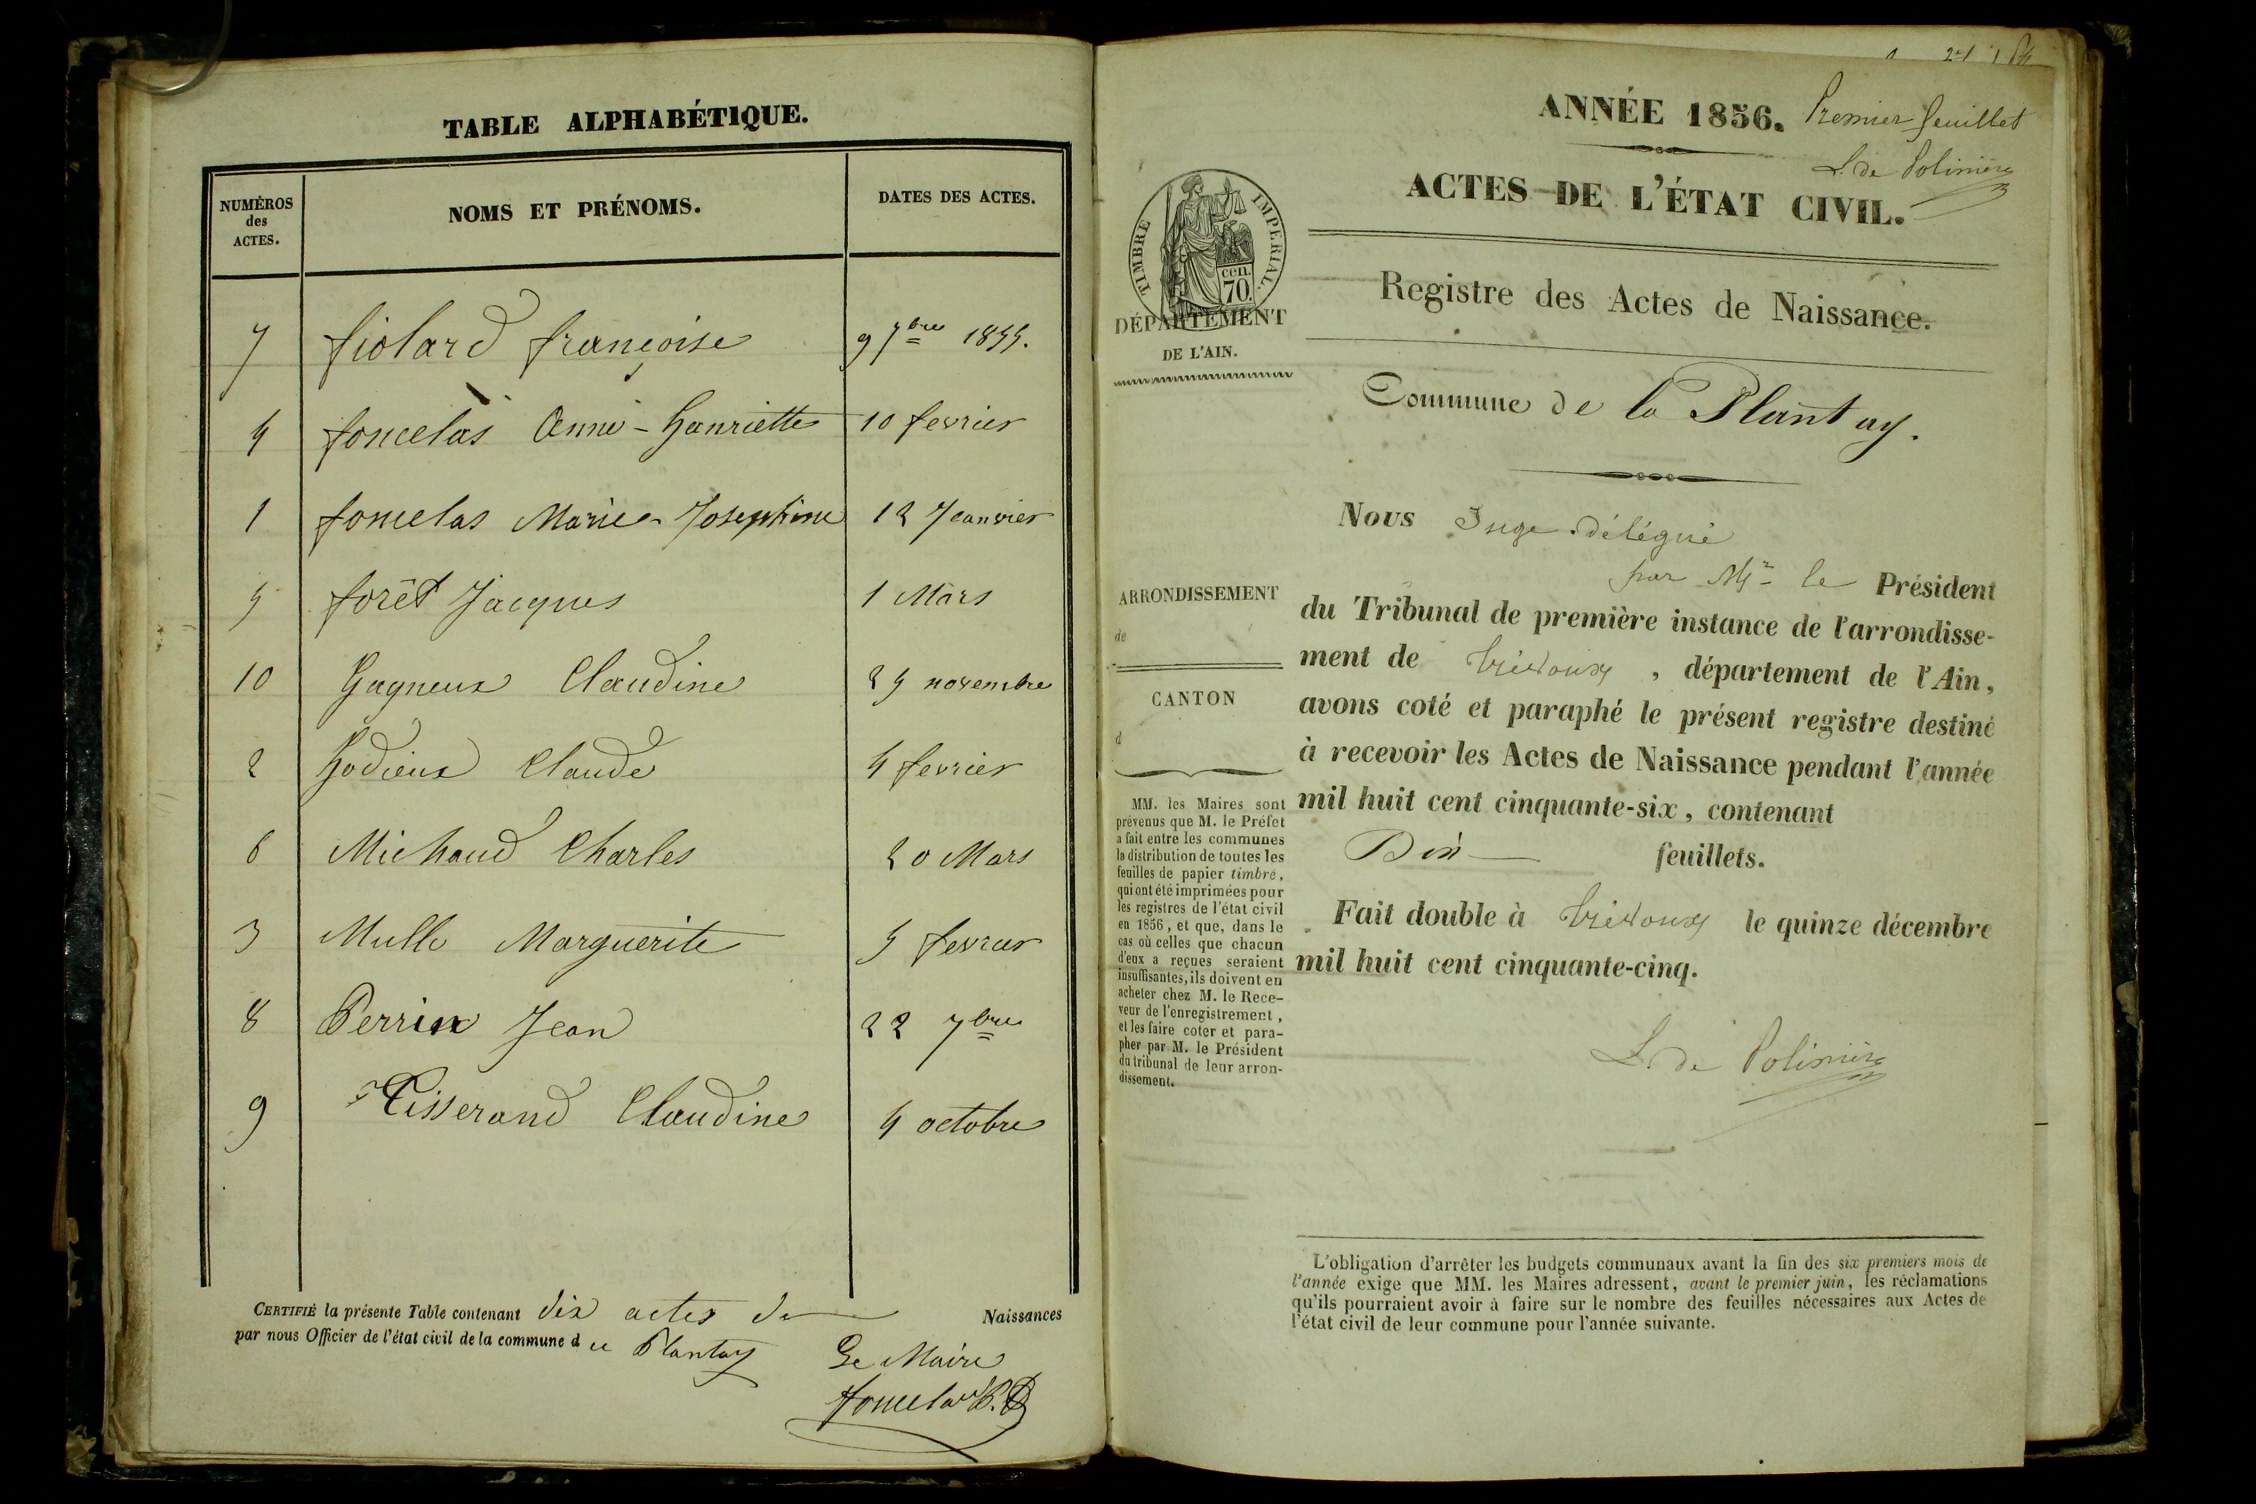 TABLE ALPHABÉTIQUE.
NUMÉROS
des
ACTES.
NOMS ET PRÉNOMS.
DATES DES ACTES.
7 fiolard françoise 9 7bre 1855.
4 foncelas Anne-henriette 10 fevrier
1 foncelas Marie-Josephine 12 Jeanvier
5 forêt Jacques 1 Mars
10 Gagneux Claudine 25 novembre
2 Godieux Claude 4 fevrier
6 Michaud Charles 20 Mars
3 Mulle Marguerite 5 fevrier
8 Perrin Jean 22 7bre
9 Tisserand Claudine 4 octobre
CERTIFIÉ la présente Table contenant dix actes de Naissances
par nous Officier de l'état civil de la commune d u Plantay
Le Maire
foncelas
ANNÉE 1856. Premier feuillet
L. de Polinière
ACTES DE L'ÉTAT CIVIL.
TIMBRE IMPÉRIAL.
cen.
70.
DÉPARTEMENT
DE L'AIN.
Registre des Actes de Naissance.
Commune de la Plantay.
ARRONDISSEMENT
de
CANTON
d
MM. les Maires sont
prévenus que M. le Préfet
a fait entre les communes
la distribution de toutes les
feuilles de papier timbré,
qui ont été imprimées pour
les registres de l'état civil
en 1856, et que, dans le
cas où celles que chacun
d'eux a reçues seraient
insuffisantes, ils doivent en
acheter chez M. le Rece-
veur de l'enregistrement,
et les faire coter et para-
pher par M. le Président
du tribunal de leur arron-
dissement.
Nous Juge délégué
par Mr le Président
du Tribunal de première instance de l'arrondisse-
ment de Trévoux, département de l'Ain,
avons coté et paraphé le présent registre destiné
à recevoir les Actes de Naissance pendant l'année
mil huit cent cinquante-six, contenant
Dix feuillets.
Fait double à Trévoux le quinze décembre
mil huit cent cinquante-cinq.
L. de Polinière
L'obligation d'arrêter les budgets communaux avant la fin des six premiers mois de
l'année exige que MM. les Maires adressent, avant le premier juin, les réclamations
qu'ils pourraient avoir à faire sur le nombre des feuilles nécessaires aux Actes de
l'état civil de leur commune pour l'année suivante.